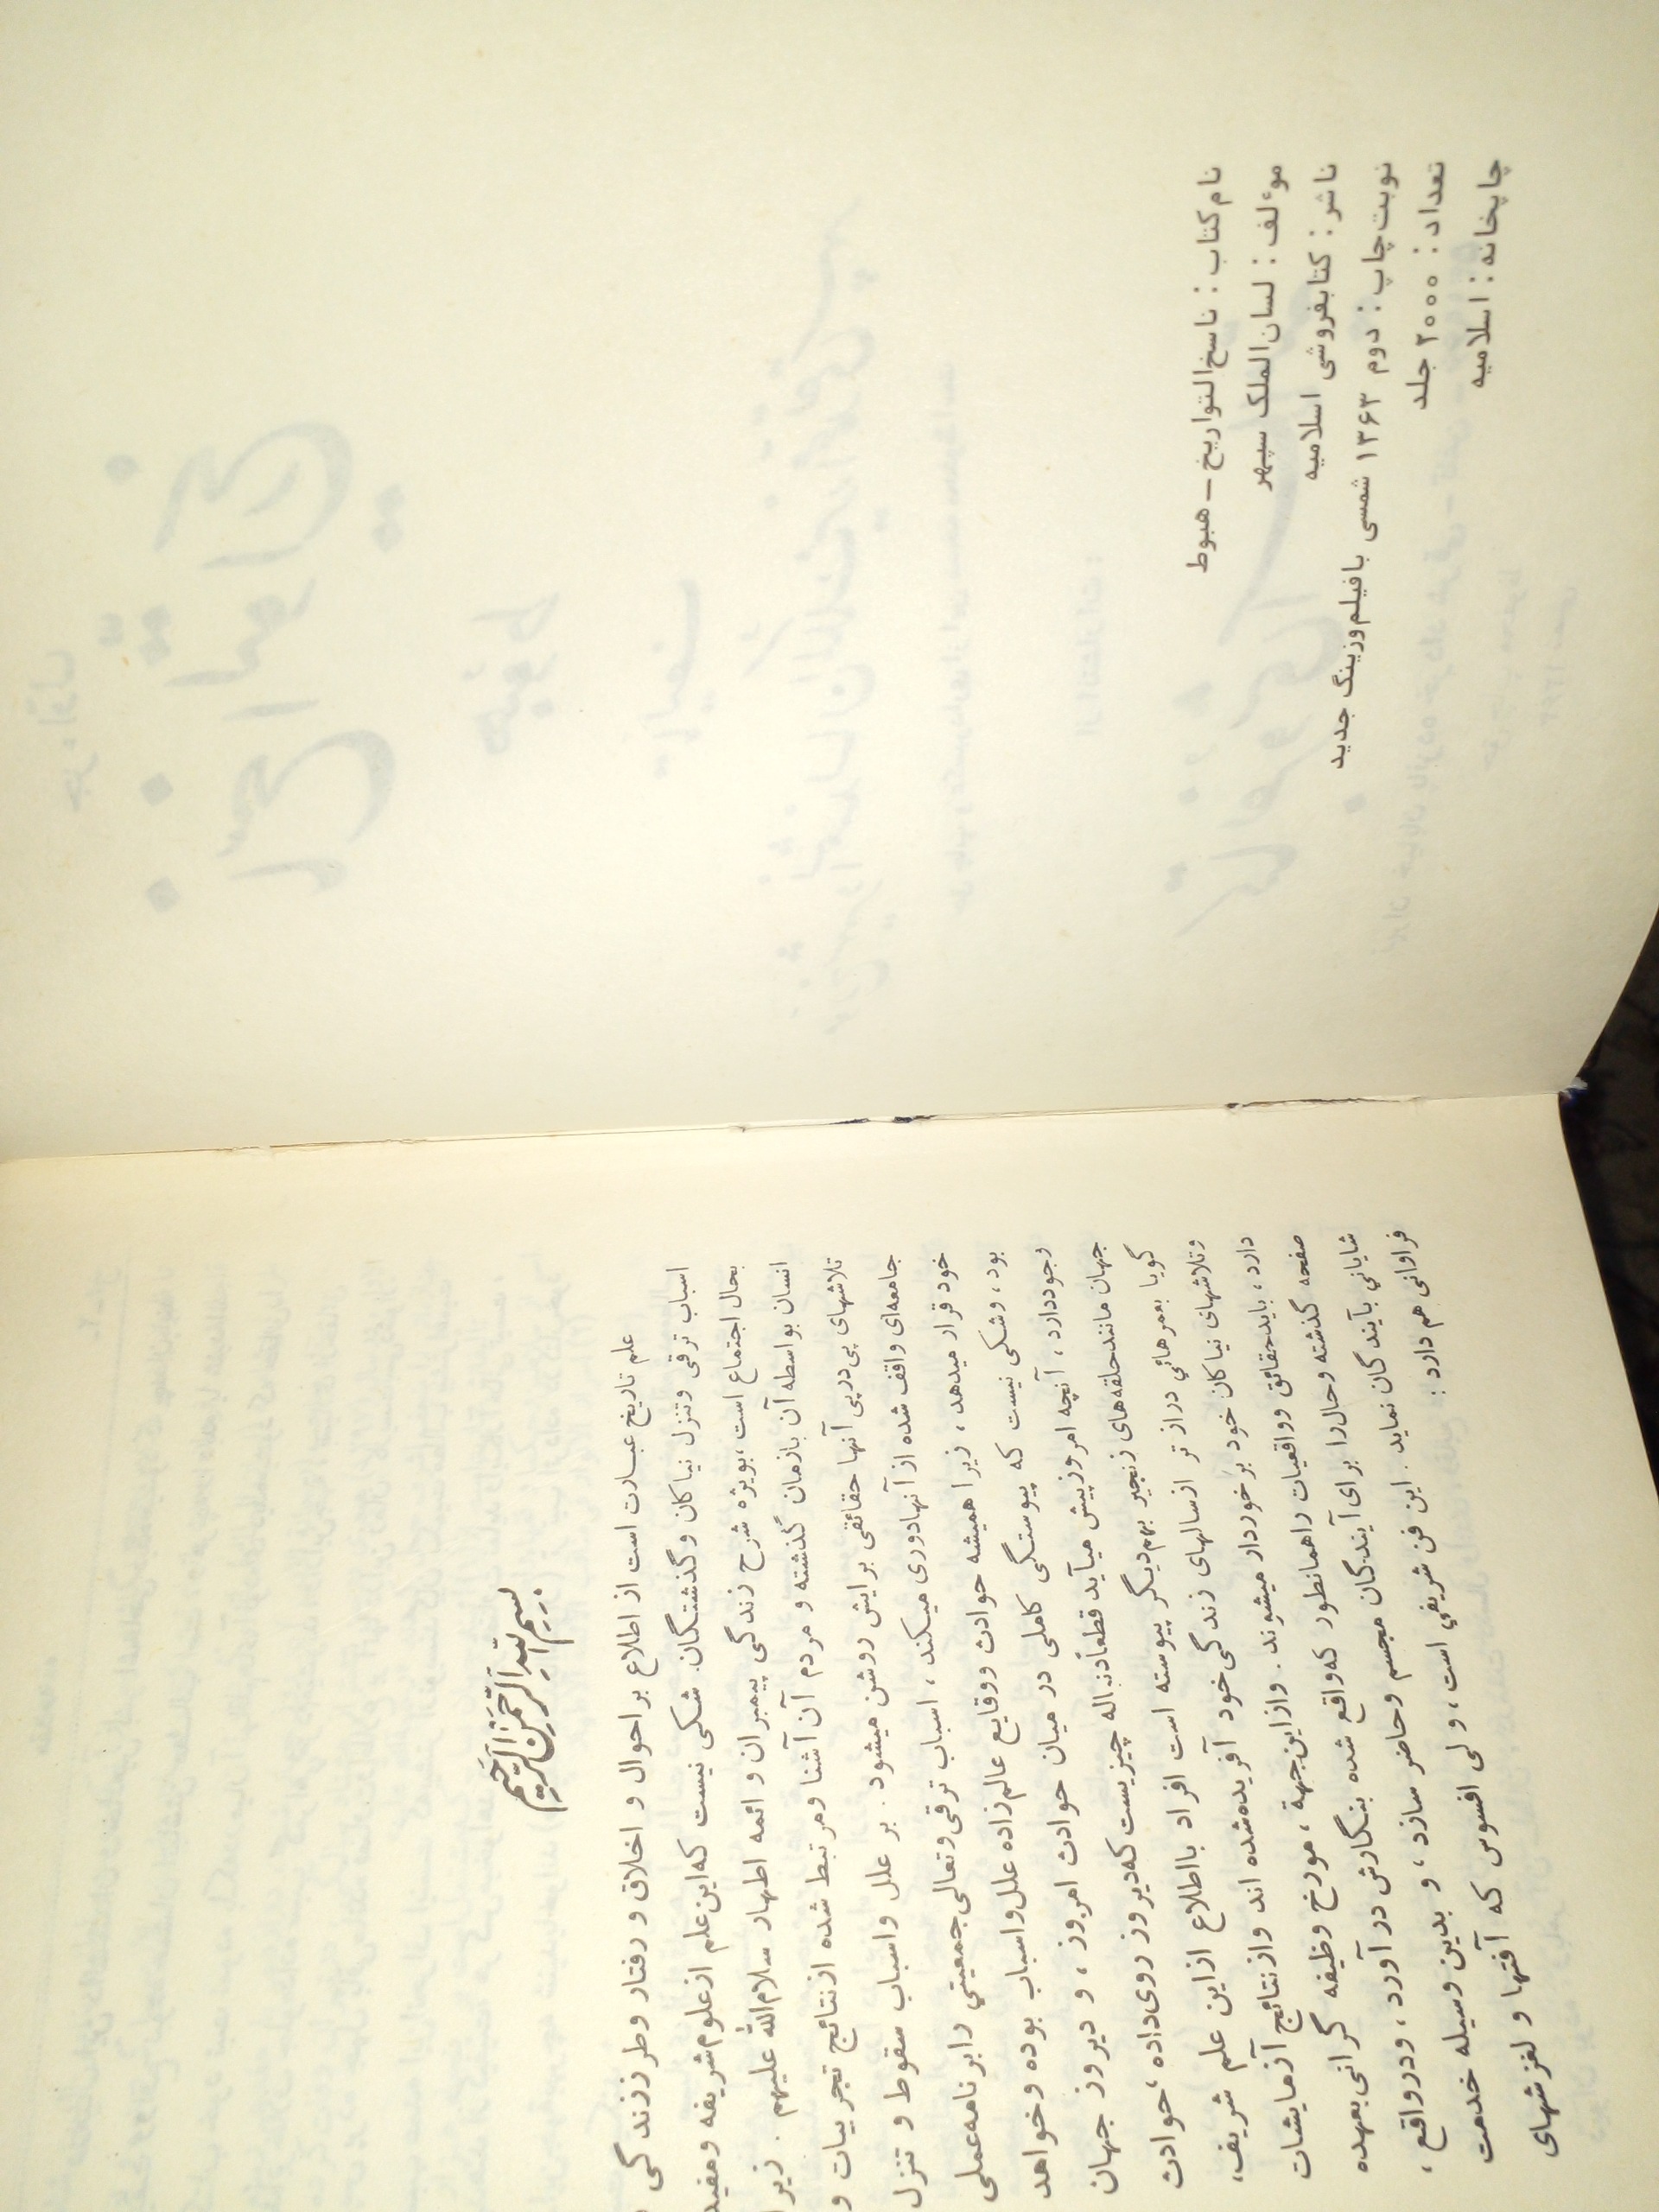 نام کتاب : ناسخ التواریخ - هبوط
مؤلف : لسان الملک سپهر
ناشر : کتابفروشی اسلامیه
نوبت چاپ : دوم ۱۳۶۳ شمسی بافیلم وزینگ جدید
تعداد : ۲۰۰۰ جلد
چاپخانه : اسلامیه
بسم الله الرحمن الرحیم
علم تاریخ عبارت است از اطلاع بر احوال و اخلاق و رفتار وطرز زندگی
اسباب ترقی وتنزل نیاکان وگذشتگان. شکی نیست که این علم از علوم شریفه ومفید
بحال اجتماع است ،بویژه شرح زندگی پیمبران و ائمه اطهار سلام الله علیهم . زیرا
انسان بواسطه آن بازمان گذشته و مردم آن آشنا ومرتبط شده ازنتائج تجربیات و
تلاشهای پی درپی آنها حقائقی برایش روشن میشود . بر علل واسباب سقوط و تنزل
جامعه‌ای واقف شده از آنهادوری میکند ، اسباب ترقی وتعالی جمعیتي رابرنامه عملی
خود قرار میدهد ، زیرا همیشه حوادث ووقایع عالم زاده علل واسباب بوده وخواهد
بود ، وشکی نیست که پیوستگی کاملی در میان حوادث امروز ، و دیروز جهان
وجوددارد ، آنچه امروزپیش میآید قطعاًدنباله چیزیست که دیروز روی داده ، حوادث
جهان مانندحلقه‌های زنجیر بهم دیگر پیوسته است افراد بااطلاع ازاین علم شریف،
گویا بعمرهائي درازتر ازسالهای زندگی خود آفریده شده اند وازنتائج آزمایشات
وتلاشهای نیاکان خود برخوردار میشوند. وازاین جهة ، مورخ وظیفه گرانی بعهده
دارد ، بایدحقائق وواقعیات راهمانطور که واقع شده بنگارش در آورد ، ودرواقع ،
صفحه گذشته وحال را برای آیندگان مجسم وحاضر سازد ، و بدین وسیله خدمت
شایاني بآیندگان نماید . این فن شریفي است ، ولی افسوس که آفتها و لغزشهای
فراوانی هم دارد :